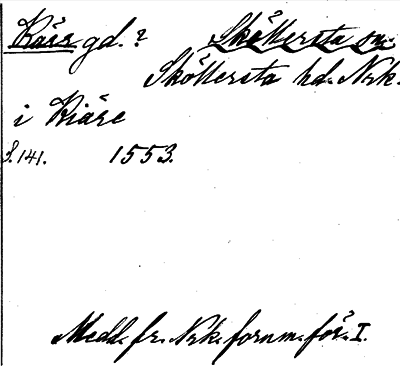 Kärr gd. ? Sköllersta sn.
Sköllersta hd. Nrk.
i Kiäre
S. 141. 1553.
Medd. fr. Nrk. fornm. för. I.